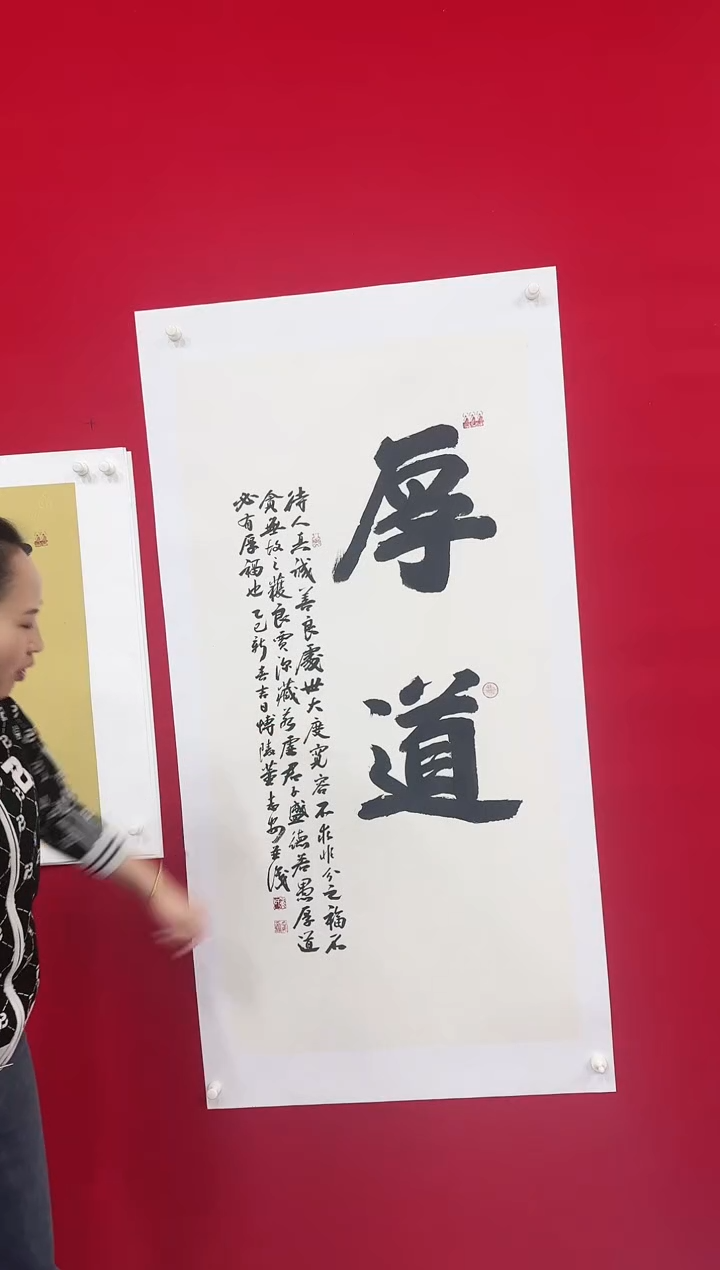 厚道
待人真诚善良處世大度寬容不求非分之福不
貪無故之獲良賈深藏若虛君子盛德若愚厚道
必有厚福也 乙巳新春吉日博陵董志安並識